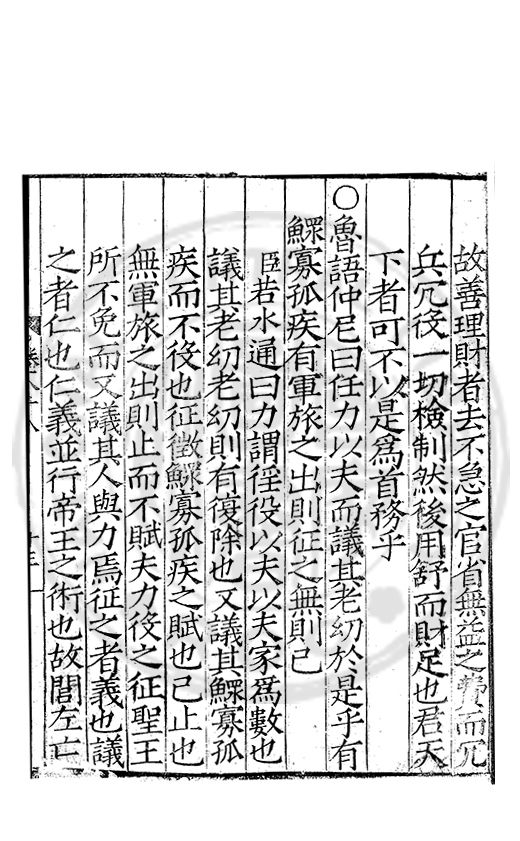 故善理財者去不急之官省無益之費而冗
兵冗役一切檢制然後用舒而財足也君天
下者可不以是為首務乎
○魯語仲尼曰任力以夫而議其老幼於是乎有
鰥寡孤疾有軍旅之出則征之無則已
臣若水通曰力謂徑役以夫以夫家為數也
議其老幼老幼則有復除也又議其鰥寡孤
疾而不役也征徵鰥寡孤疾之賦也已止也
無軍旅之出則止而不賦夫力役之征聖王
所不免而又議其人與力焉征之者義也議
之者仁也仁義並行帝王之術也故閭左亡